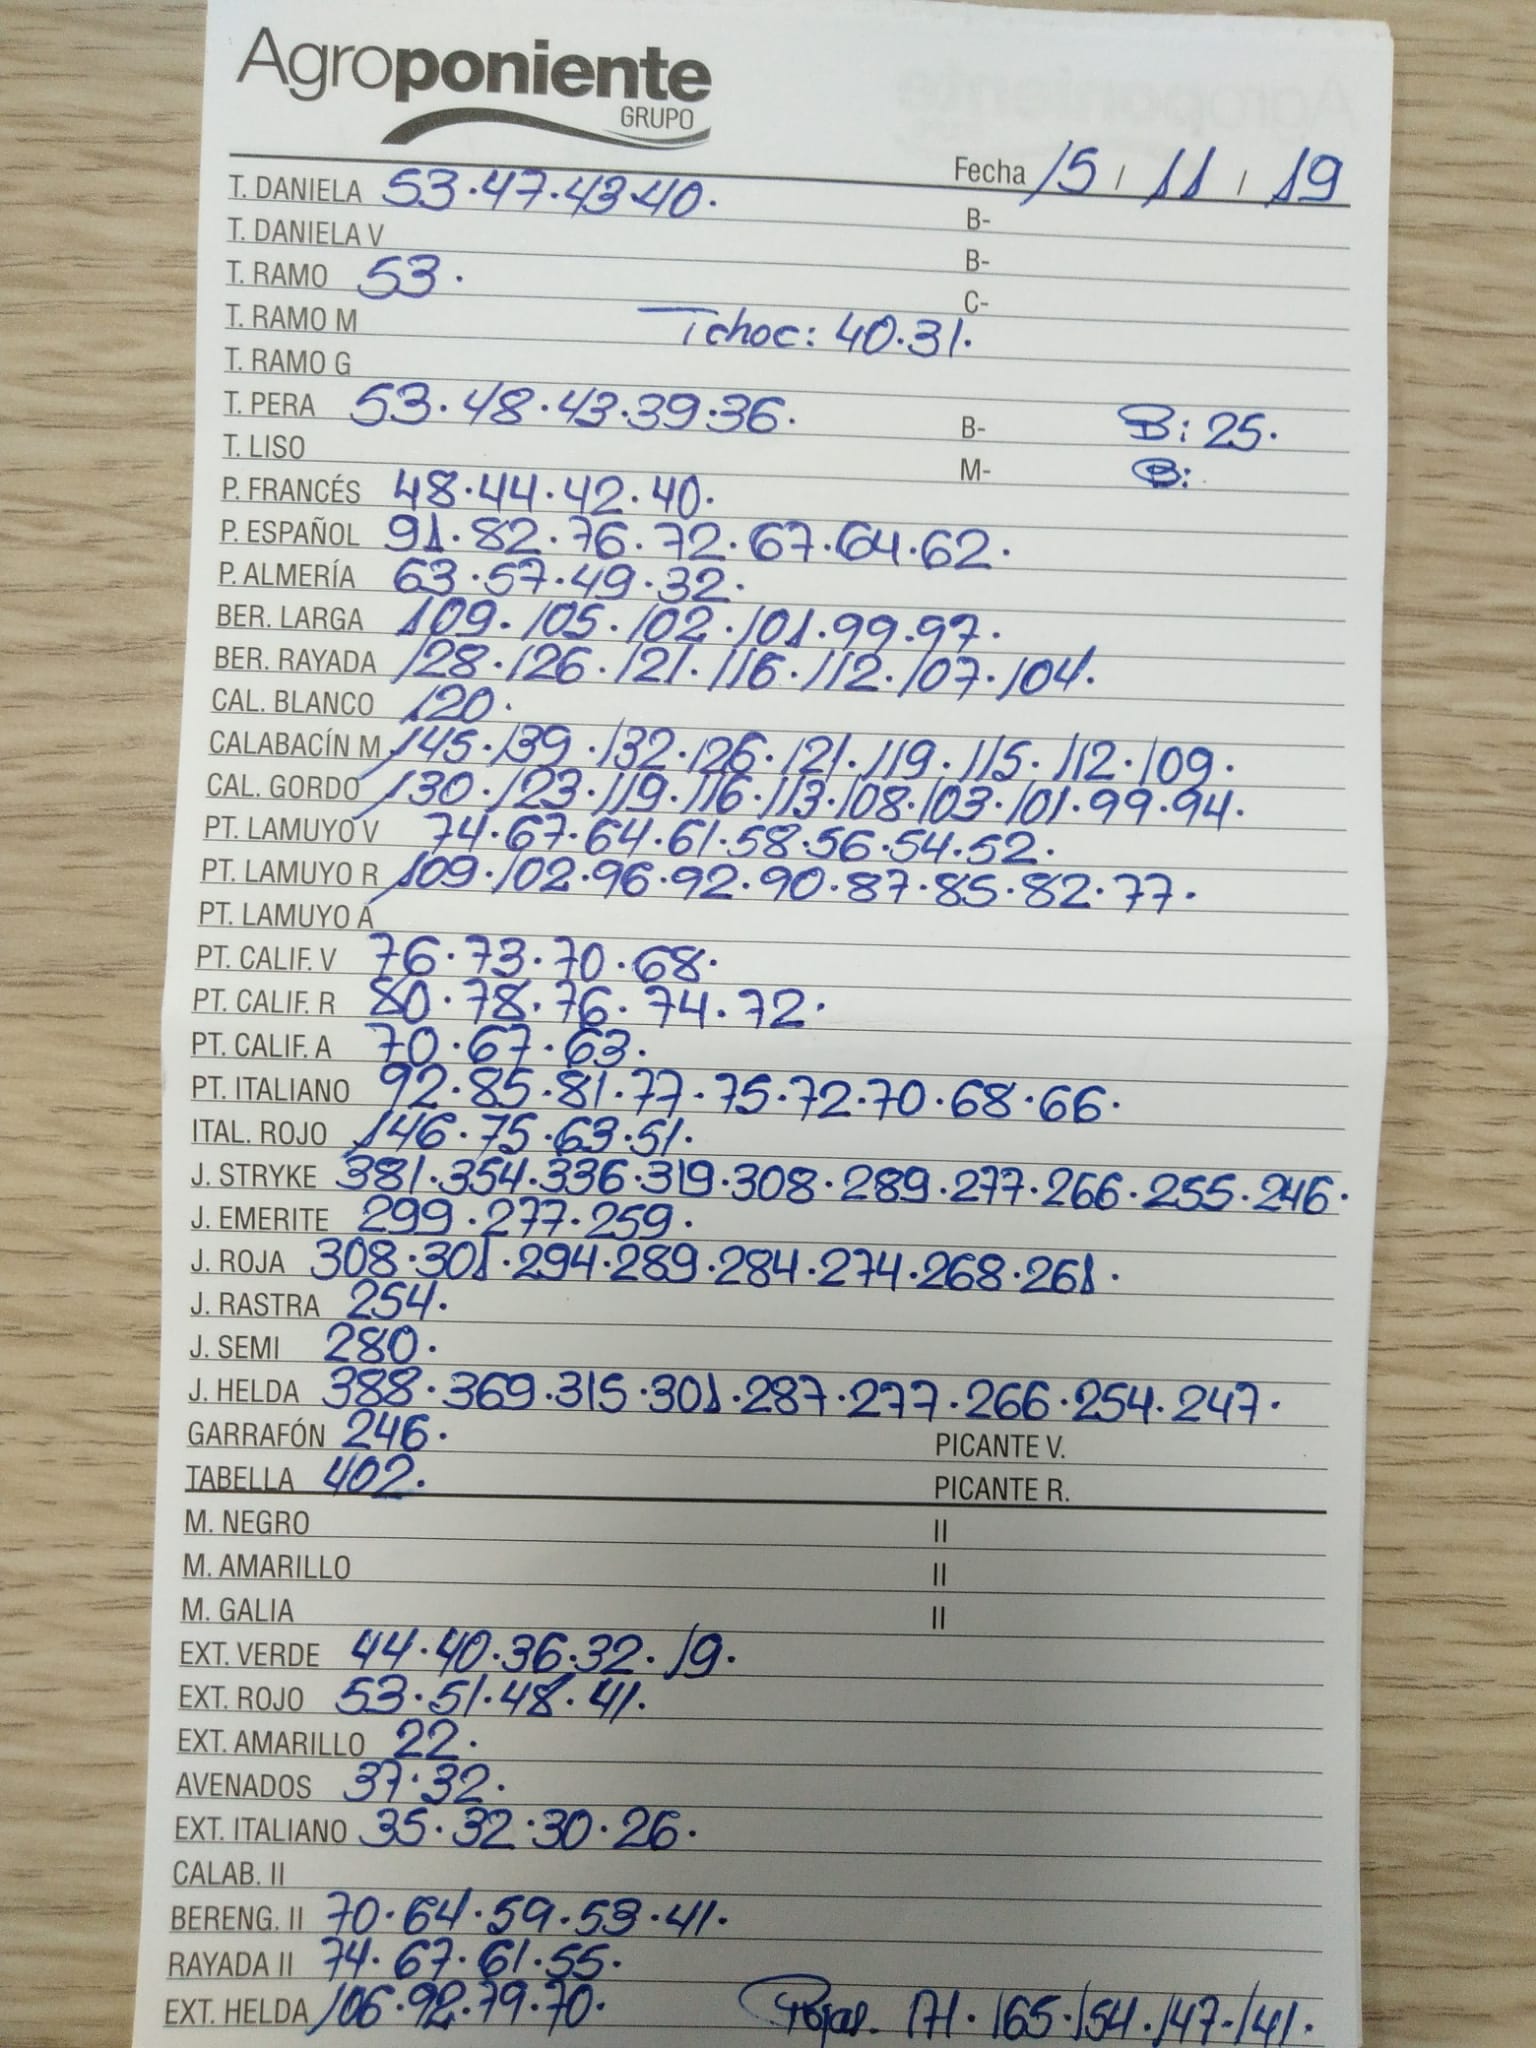 Agroponiente
GRUPO
Fecha 15 / 11 / 19
T. DANIELA 53.47.43.40. B-
T. DANIELA V B-
T. RAMO 53. C-
T. RAMO M Tchoc: 40.31.
T. RAMO G
T. PERA 53.48.43.39.36. B- B: 25.
T. LISO M- B:
P. FRANCÉS 48.44.42.40.
P. ESPAÑOL 91.82.76.72.67.64.62.
P. ALMERÍA 63.57.49.32.
BER. LARGA 109.105.102.101.99.97.
BER. RAYADA 128.126.121.116.112.107.104.
CAL. BLANCO 120.
CALABACÍN M 145.139.132.126.121.119.115.112.109.
CAL. GORDO 130.123.119.116.113.108.103.101.99.94.
PT. LAMUYO V 74.67.64.61.58.56.54.52.
PT. LAMUYO R 109.102.96.92.90.87.85.82.77.
PT. LAMUYO A
PT. CALIF. V 76.73.70.68.
PT. CALIF. R 80.78.76.74.72.
PT. CALIF. A 70.67.63.
PT. ITALIANO 92.85.81.77.75.72.70.68.66.
ITAL. ROJO 146.75.63.51.
J. STRYKE 381.354.336.319.308.289.277.266.255.246.
J. EMERITE 299.277.259.
J. ROJA 308.301.294.289.284.274.268.261.
J. RASTRA 254.
J. SEMI 280.
J. HELDA 388.369.315.301.287.277.266.254.247.
GARRAFÓN 246. PICANTE V.
TABELLA 402. PICANTE R.
M. NEGRO II
M. AMARILLO II
M. GALIA II
EXT. VERDE 44.40.36.32.19.
EXT. ROJO 53.51.48.41.
EXT. AMARILLO 22.
AVENADOS 37.32.
EXT. ITALIANO 35.32.30.26.
CALAB. II
BERENG. II 70.64.59.53.41.
RAYADA II 74.67.61.55.
EXT. HELDA 106.92.79.70. Rojas. 171.165.154.147.141.